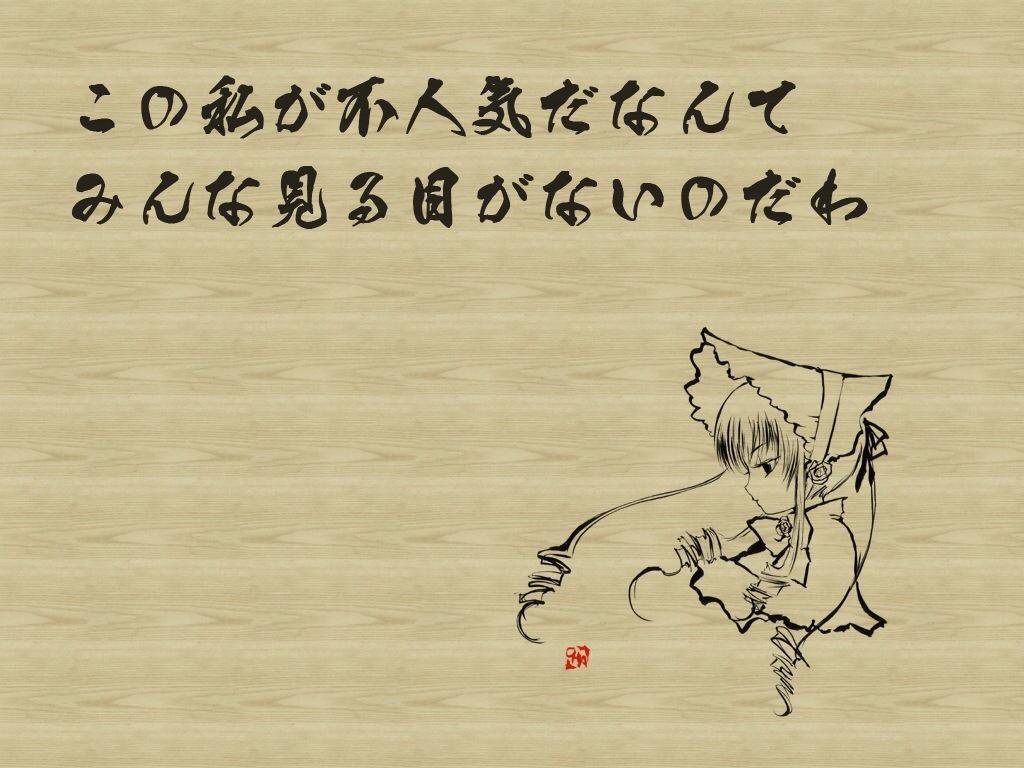 この私が不人気だなんて
みんな見る目がないのだわ